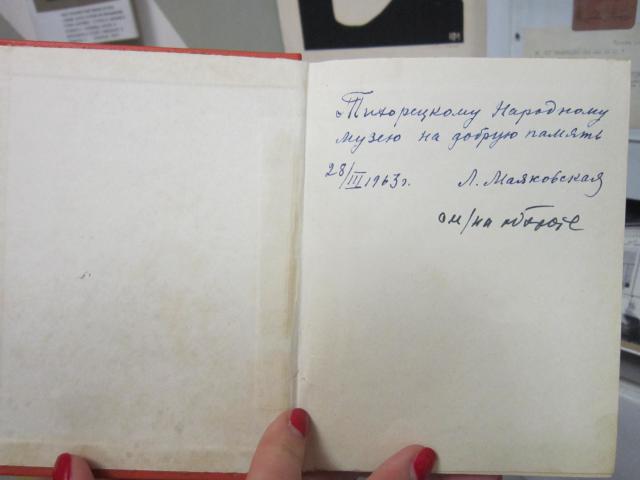 Тихорецкому Народному
музею на добрую память
28/III 1963г. Л. Маяковская
см/на обороте